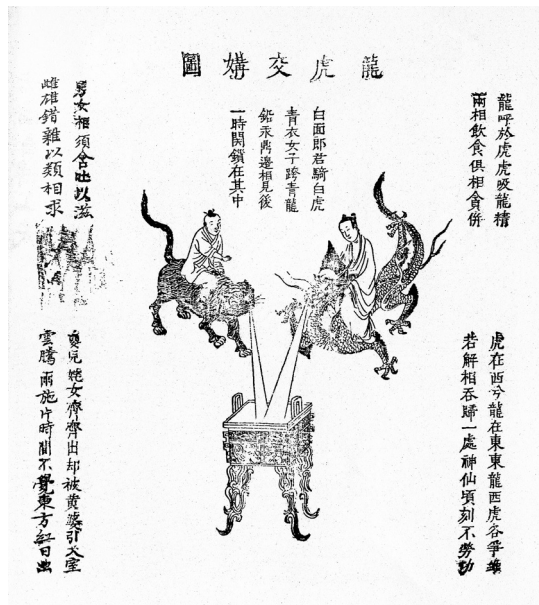 龍虎交媾圖
龍呼於虎虎吸龍精
兩相飲食俱相貪併
白面郎君騎白虎
青衣女子跨青龍
鉛汞鼎邊相見後
一時関鎖在其中
男女相須含吐以滋
雌雄錯雜以類相求
虎在西兮龍在東東龍西虎各爭雄
若解相吞歸一處神仙頃刻不勞功
嬰兒姹女齊齊出却被黄婆引入室
雲騰雨施片時間不覺東方紅日出